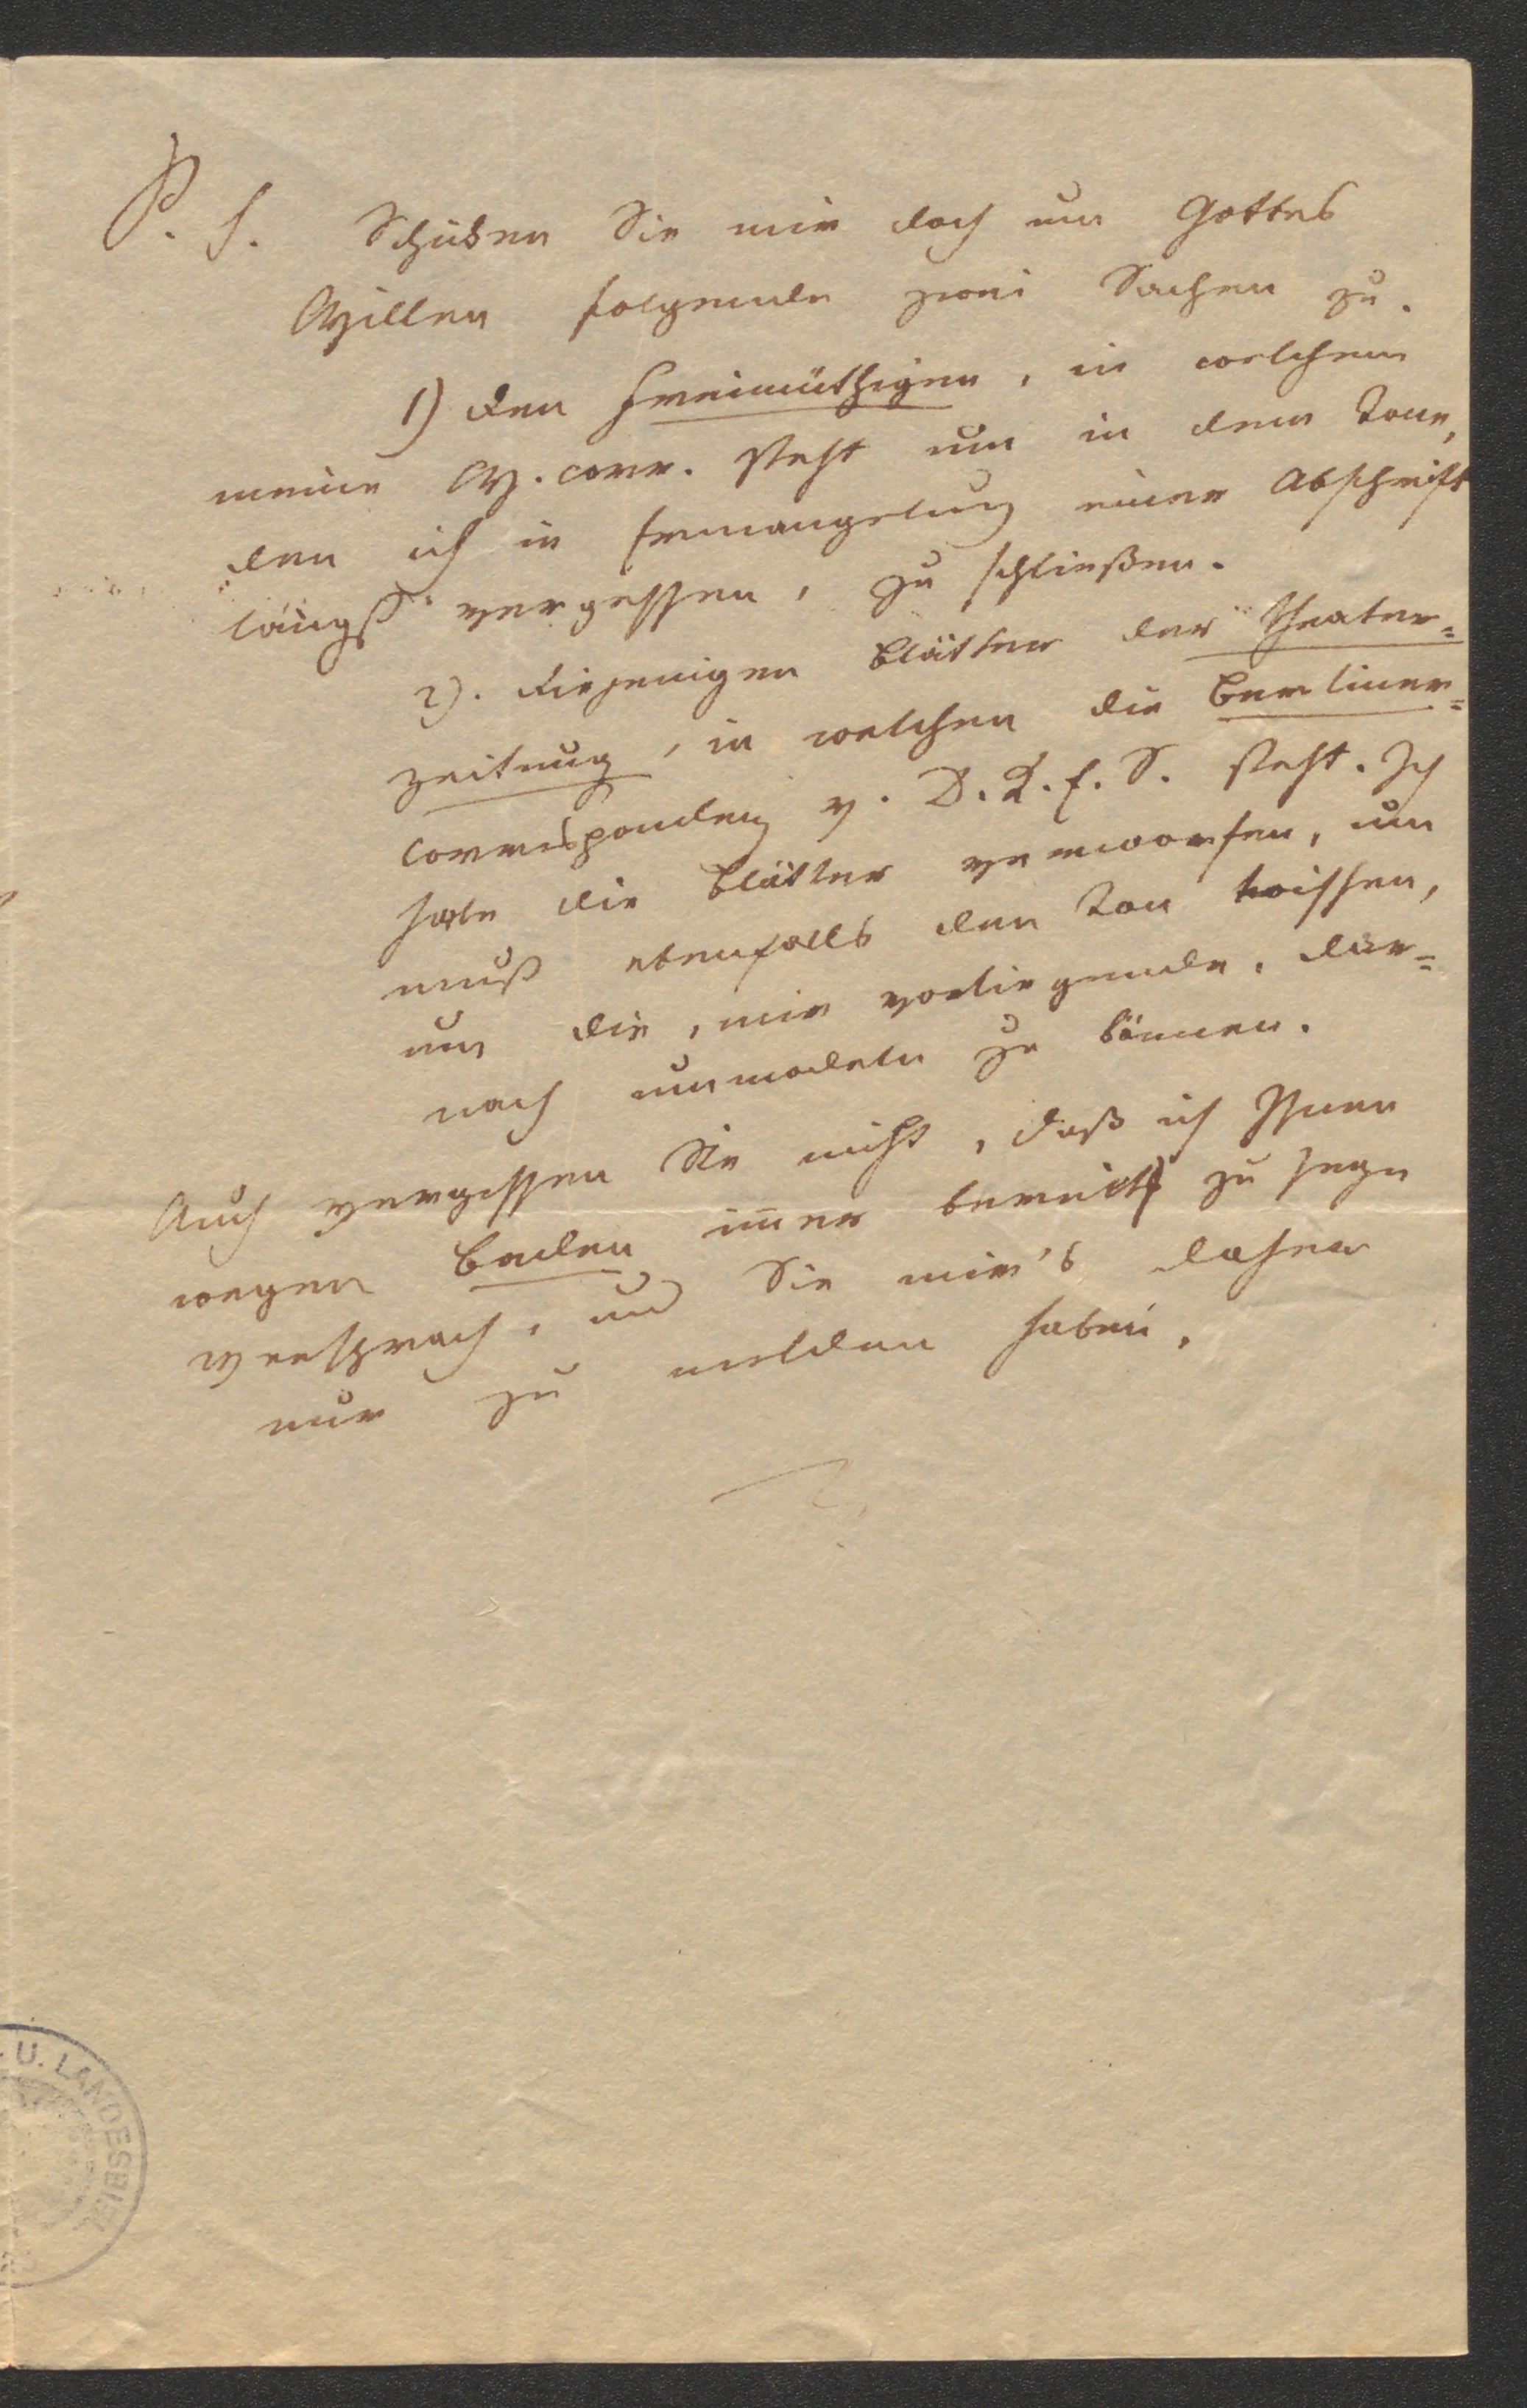 P. S. Schicken Sie mir doch um Gottes
Willen folgende zwei Sachen zu.
1) den Freimüthigen, in welchem
meine W. corr. steht um in dem Tone,
den ich in Ermangelung einer Abschrift
längst vergessen, zu schließen.
2). diejenigen Blätter der Theater=
zeitung, in welchen die Berliner=
correspondenz v. D. K. f. S. steht. Ich
habe die Blätter verworfen, und
muß ebenfalls den Ton wissen,
um die, mir vorliegende, dar=
nach ummodeln zu können.
Auch vergessen Sie nicht, daß ich Ihnen
wegen Baden immer bereit zu seyn
versprach, und Sie mir's daher
nur zu melden haben.
U. LANDESBIBL